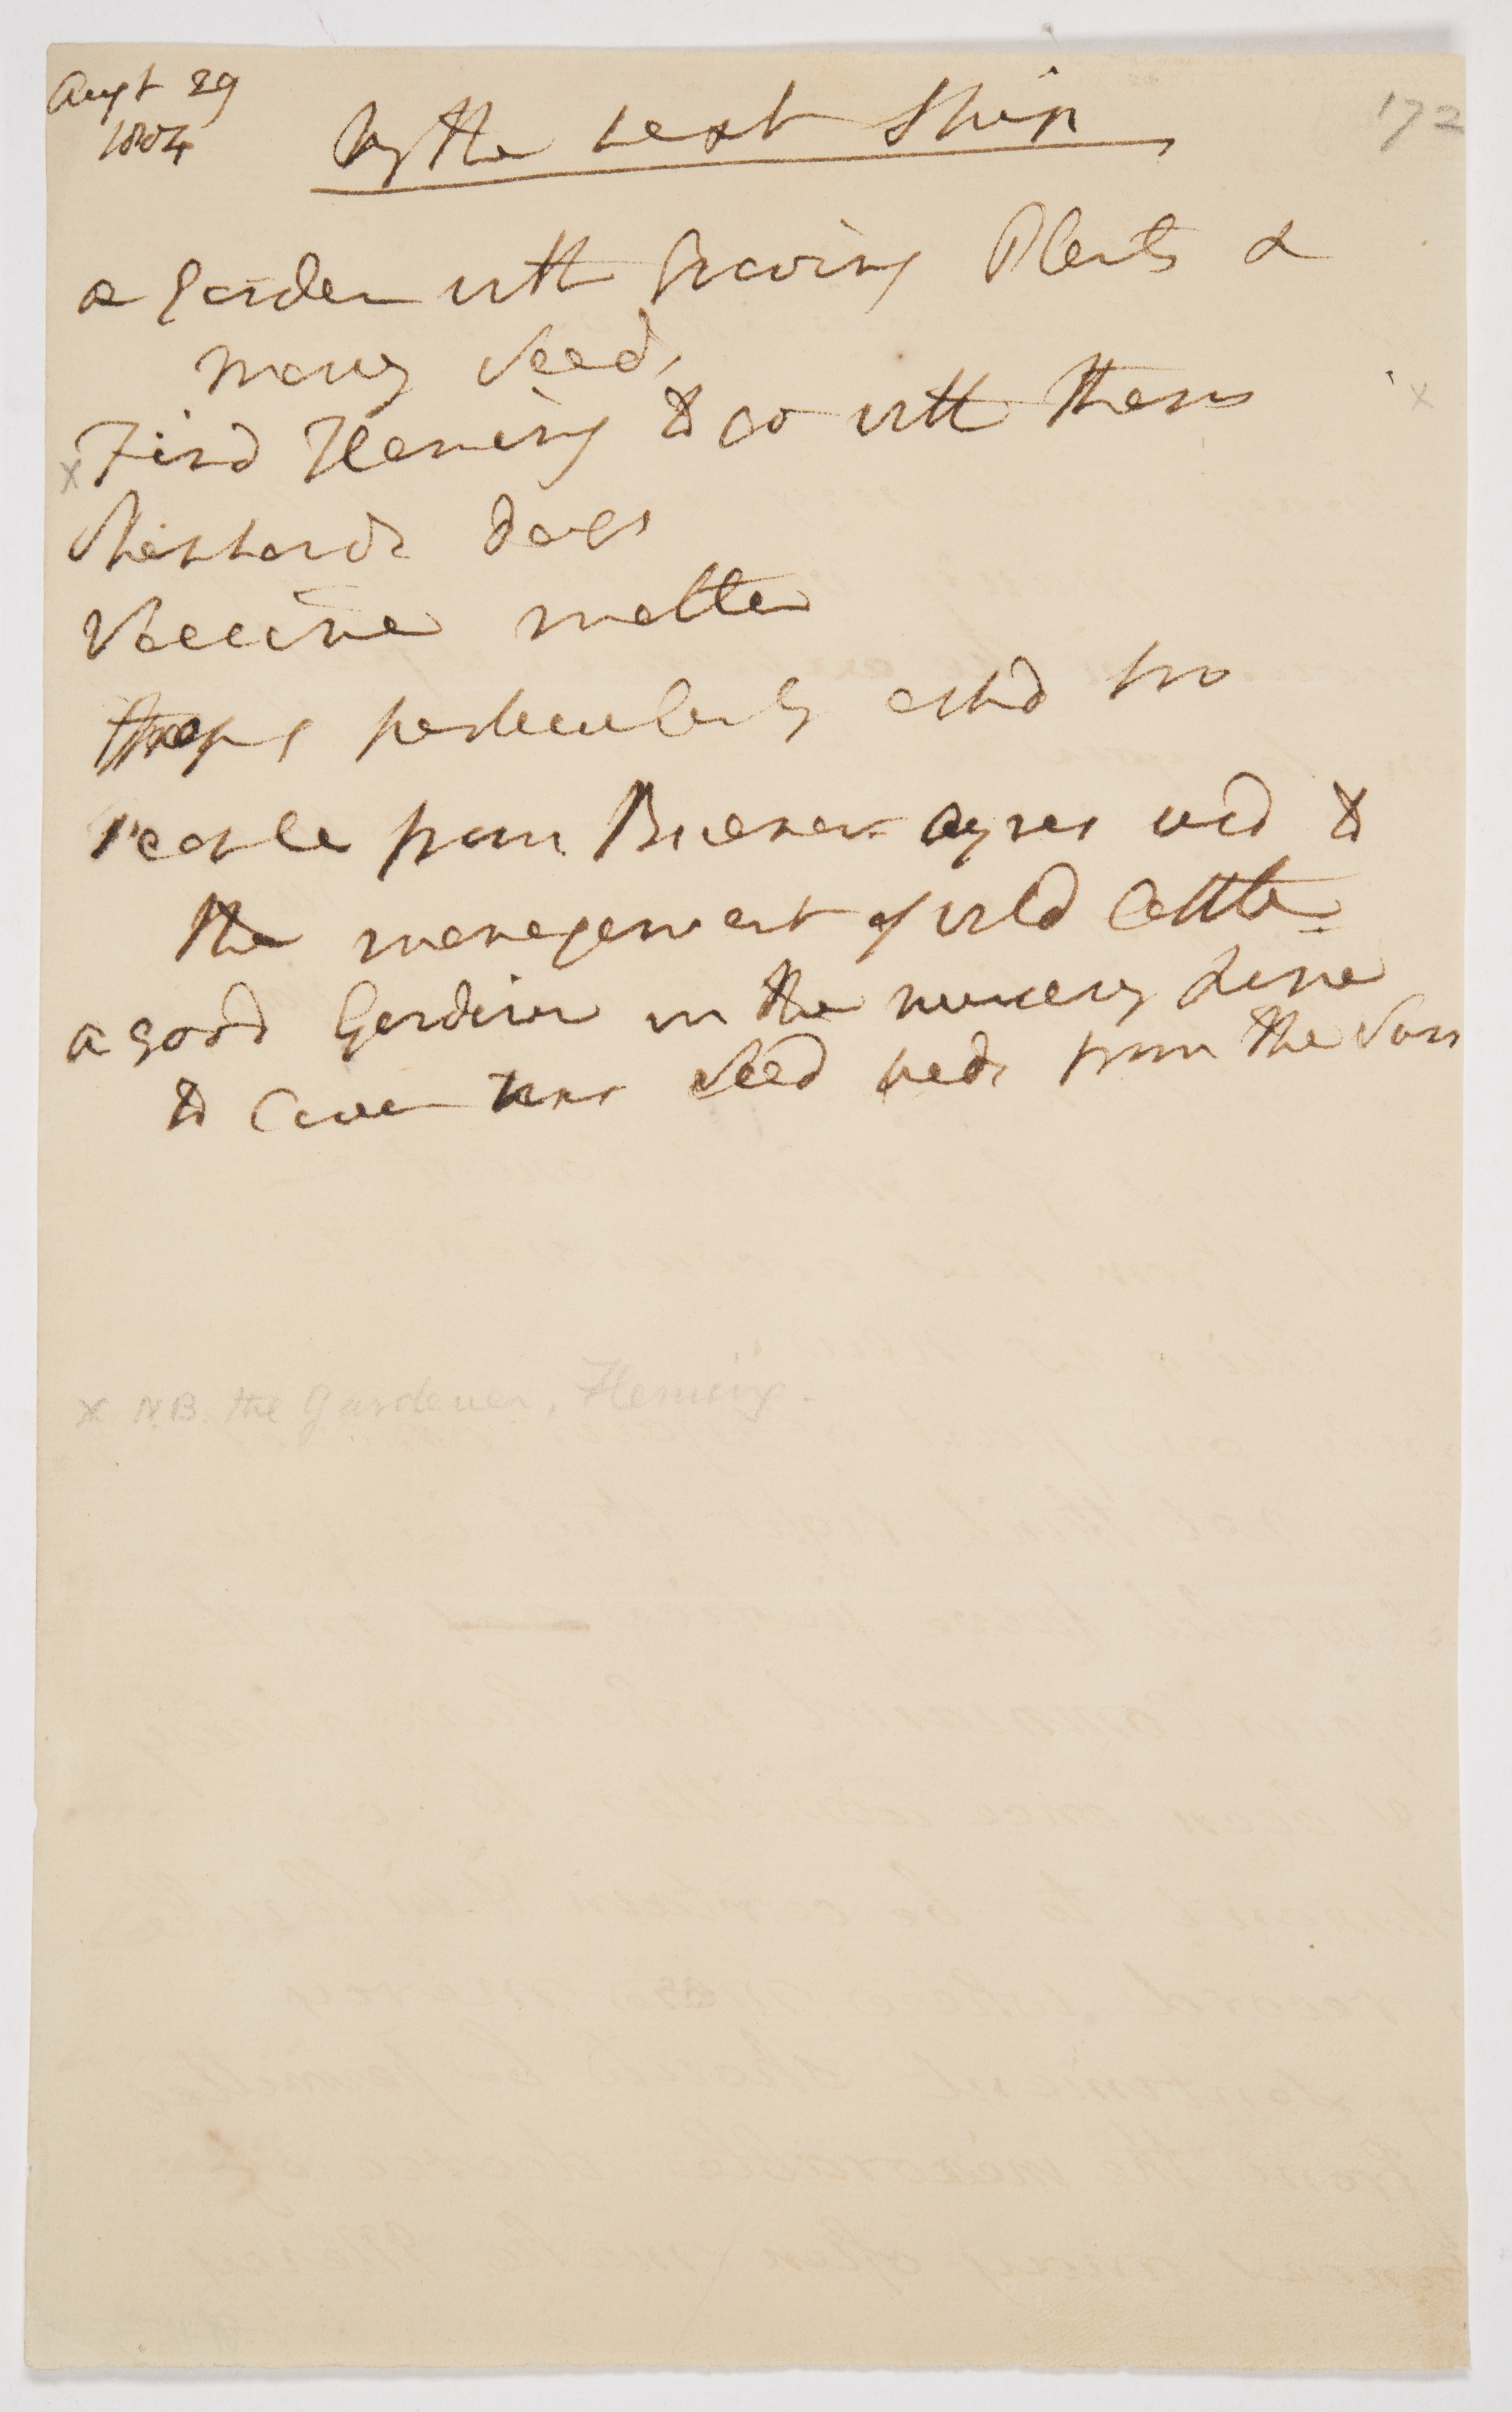 Augt 29
1804
172
by the next Ship
a Garden with Growing Plants &
many Seeds
x Find Fleming to go with them x
Shepherds dogs
Vaccine matter
Hops particularly askd for
People from Buenos Ayres usd to
the management of wild Cattle
a good Gardiner in the nursery Line
to Cover his Seed beds from the Sun
x N.B. the Gardener, Fleming.